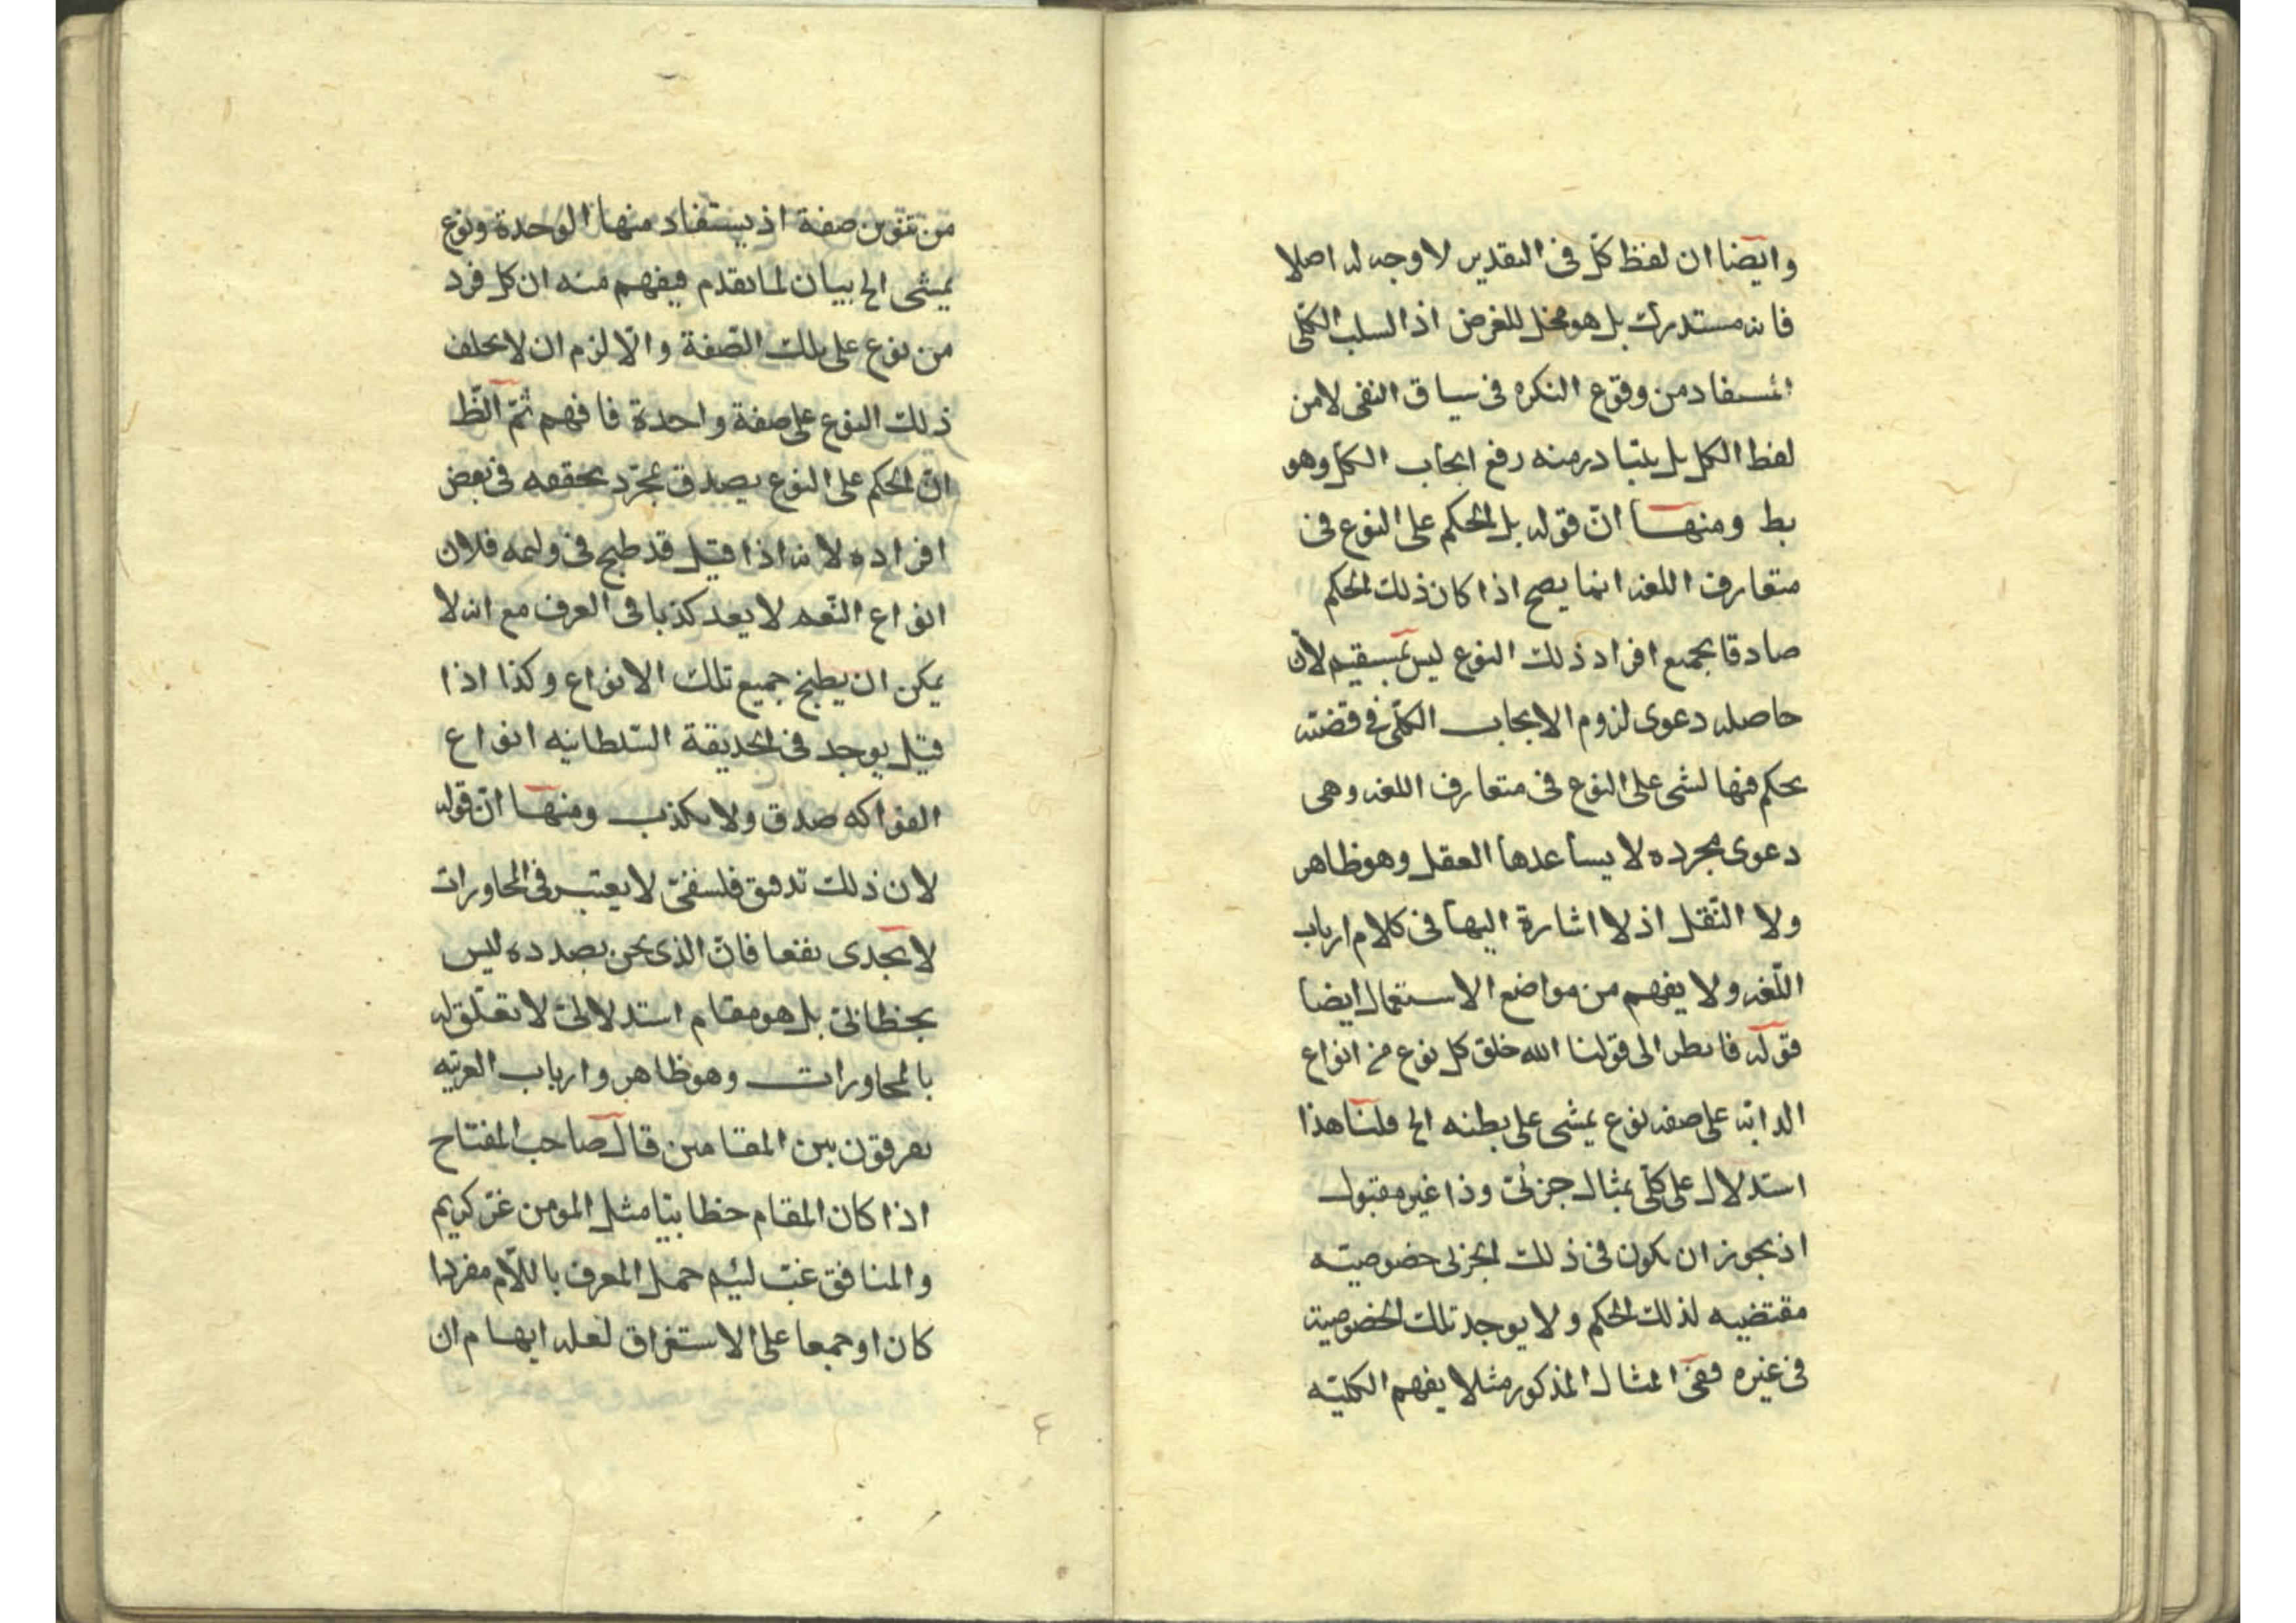 وايضا ان لفظ كل فى التقدير لا وجه له اصلا
فانه مستدرك بل هو مخل للغرض اذ السلب الكلى
المستفاد من وقوع النكره فى سياق النفى لا من
لفظ الكل بل يتبادر منه رفع ايجاب الكل وهو
بط ومنها انّ قوله بل الحكم على النوع فى
متعارف اللغه انما يصح اذا كان ذلك الحكم
صادقا بجميع افراد ذلك النوع ليس بمستقيم لأن
حاصله دعوى لزوم الايجاب الكلّى فى قضيّه
يحكم فيها لشى على النوع فى متعارف اللغه وهى
دعوى مجرده لا يساعدها العقل وهو ظاهر
ولا النّقل اذ لا اشارة اليها فى كلام ارباب
اللّغه ولا يفهم من مواضع الاستعمال ايضا
قوله فانظر الى قولنا الله خلق كل نوع من انواع
الدابّه على صفه نوع يمشى على بطنه الخ قلنا هذا
استدلال على كلّى بمثال جزئى وذا غير مقبول
اذ يجوز ان يكون فى ذلك الجزئى خصوصيّه
مقتضيه لذلك الحكم ولا يوجد تلك الخصوصية
فى غيره ففى المثال المذكور مثلا يفهم الكليّه
من تنوين صفة اذ يستفاد منها الوحدة ونوع
يمشى الخ بيان لما تقدم فيفهم منه ان كل فرد
من نوع على تلك الصّفة والّا لزم ان لا يخلف
ذلك النوع على صفة واحدة فافهم ثمّ النّظ
انّ الحكم على النوع يصدق بمجرّد تحققه فى بعض
افراده لانه اذا قيل قد طبخ فى وليمه فلان
انواع النّعمه لا يعد كذبا فى العرف مع انه لا
يمكن ان يطبخ جميع تلك الانواع وكذا اذا
قيل يوجد فى الحديقة السّلطانيه انواع
الفواكه صدق ولا يكذب ومنها انّ قوله
لان ذلك تدقيق فلسفىّ لا يعتبر فى المحاورات
لا يجدى نفعا فانّ الذى نحن بصدده ليس
بخطابىّ بل هو مقام استدلالىّ لا تعلّق له
بالمحاورات وهو ظاهر وارباب العربيّه
يفرقون بين المقامين قال صاحب المفتاح
اذا كان المقام خطابيّا مثل المومن غرّ كريم
والمنافق خبّ لئيم حمل المعرف باللّام مفردا
كان او جمعا على الاستغراق لعله ايهام ان
٤